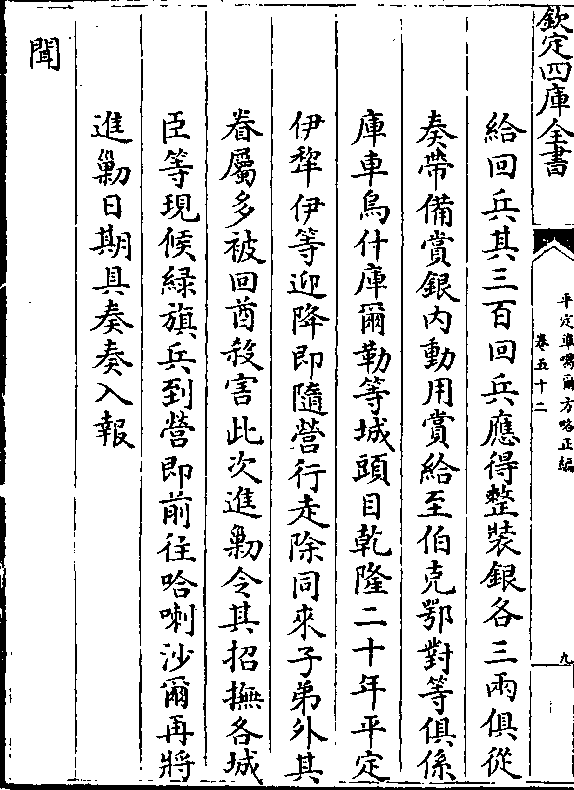 欽定四庫全書
平定準噶爾方略正編
卷五十二
九
給回兵其三百回兵應得整裝銀各三兩俱從
奏帶備賞銀内動用賞給至伯克鄂對等俱係
庫車烏什庫爾勒等城頭目乾隆二十年平定
伊犂伊等迎降即隨營行走除同來子弟外其
眷屬多被回酋殺害此次進勦令其招撫各城
臣等現候緑旗兵到營即前往哈喇沙爾再將
進勦日期具奏奏入報
聞